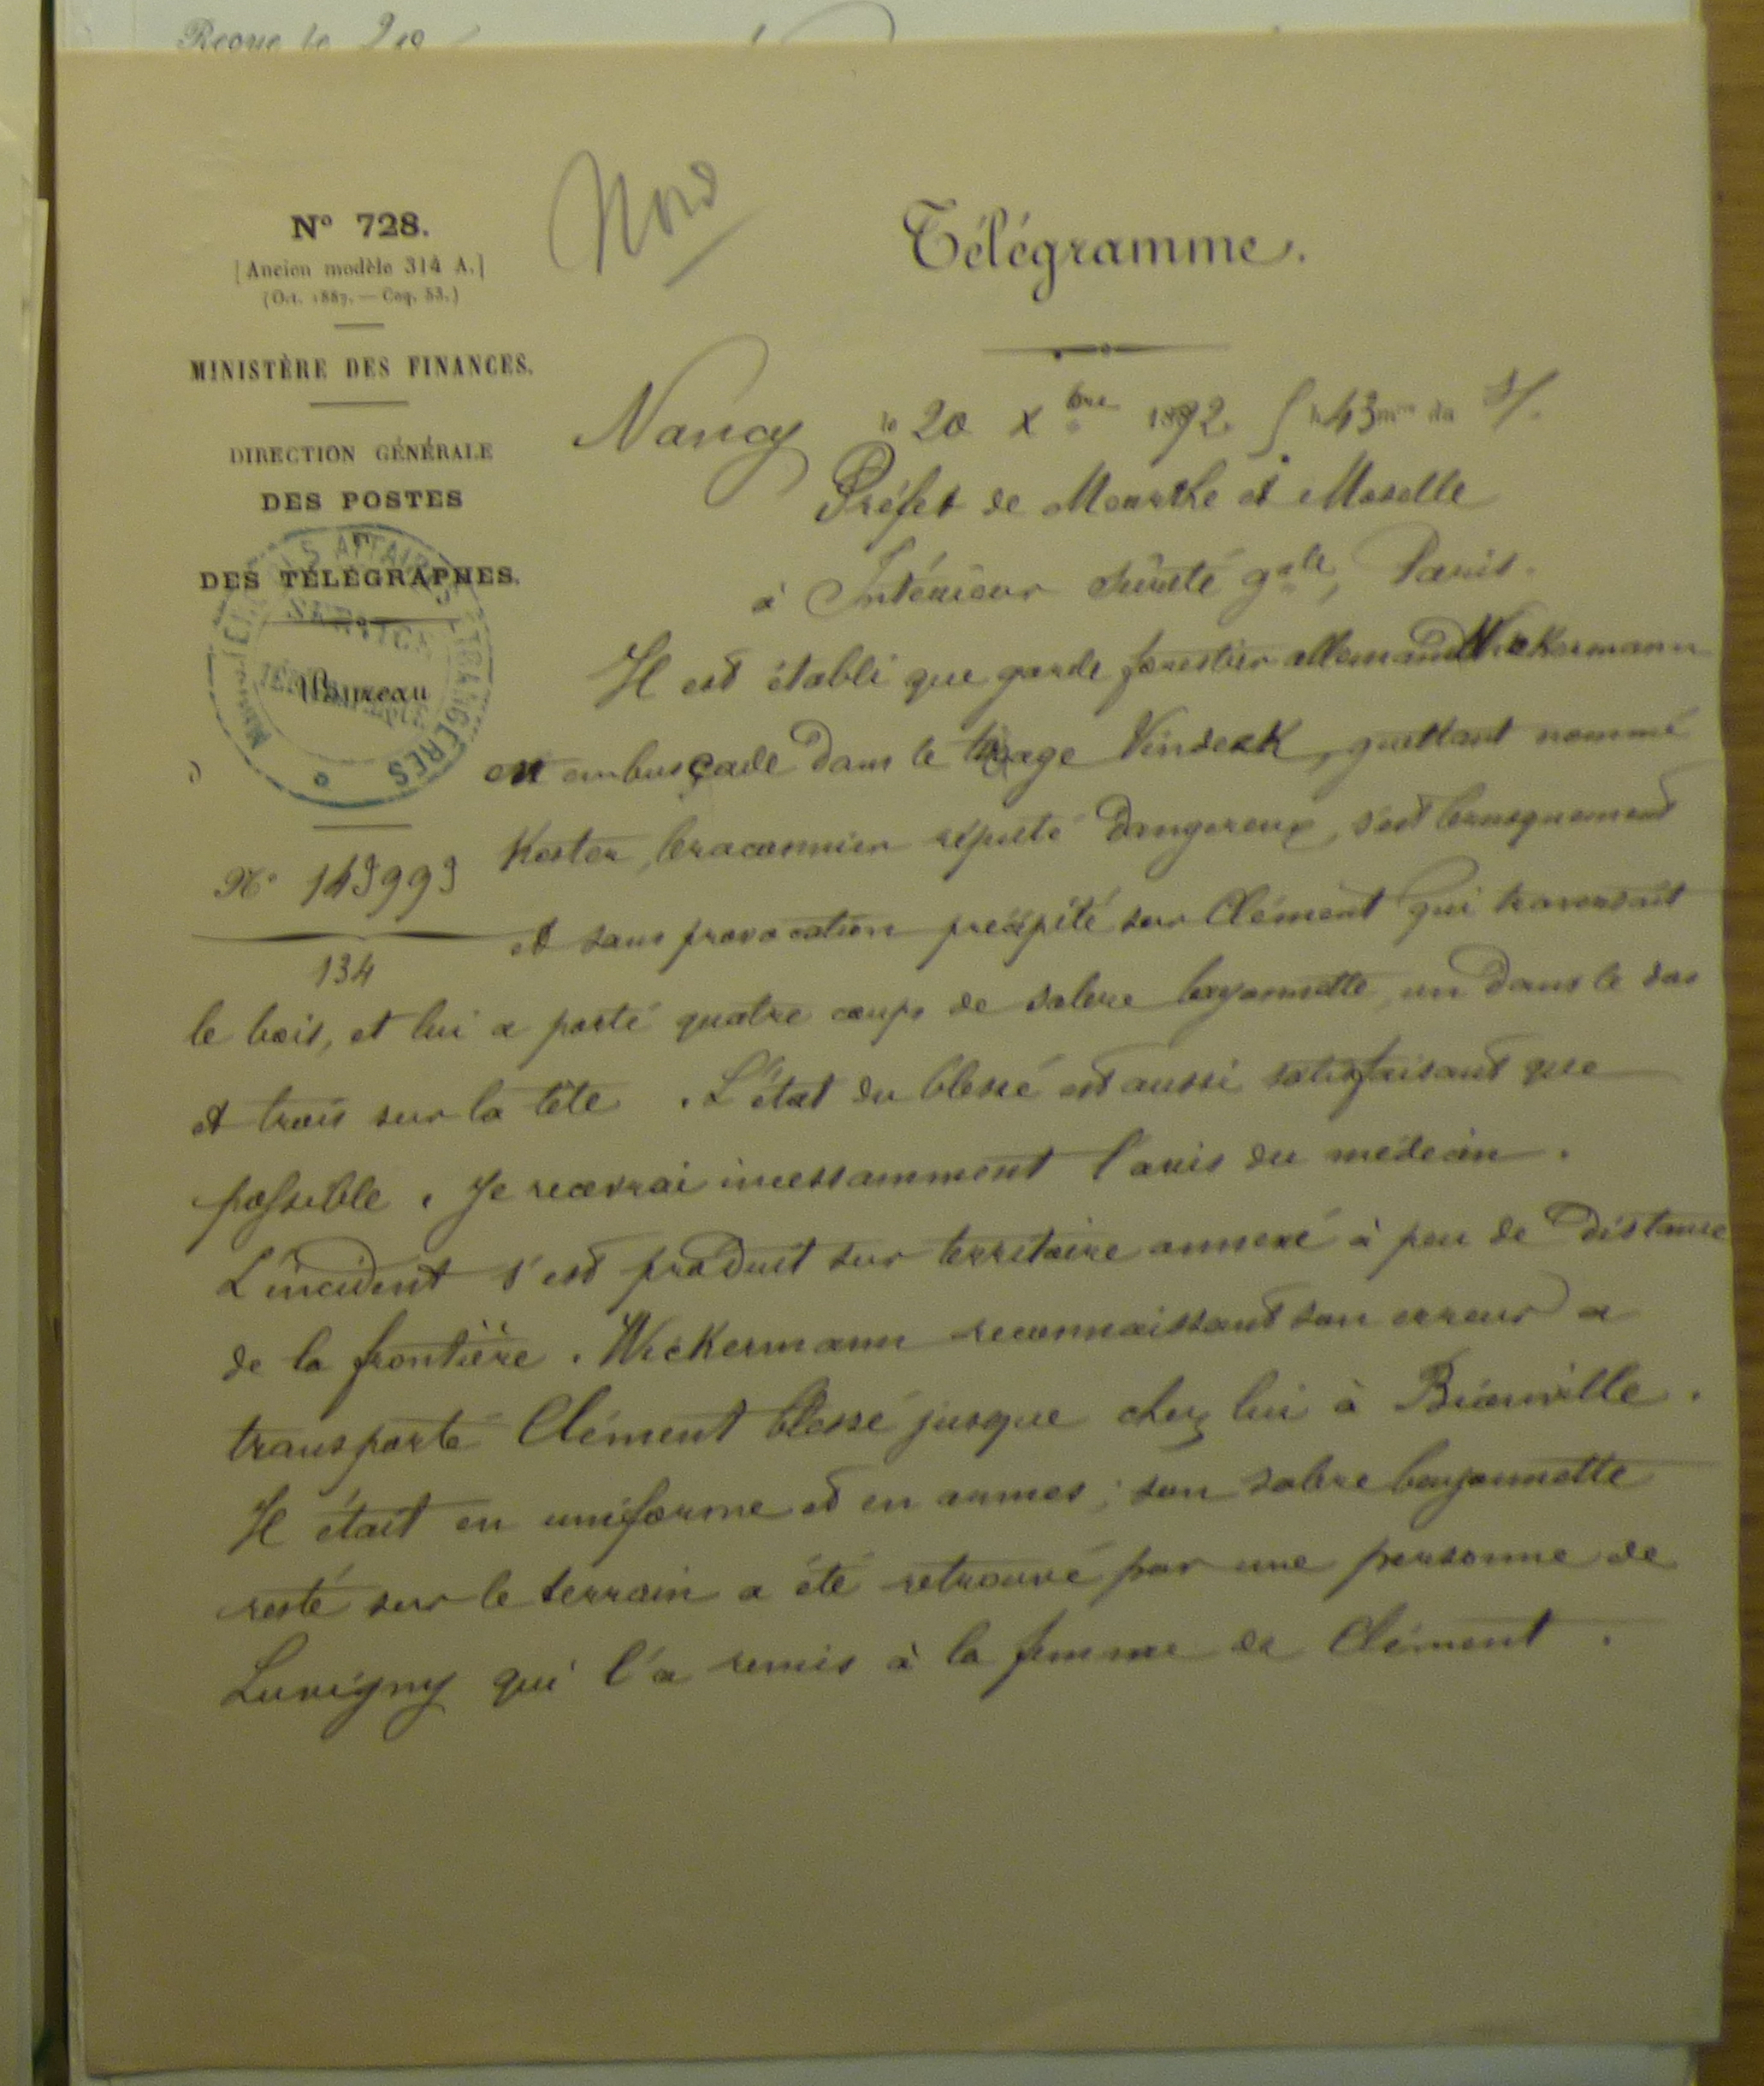 Reçue le 20
N° 728.
[Ancien modèle 314 A.]
(Oct. 1887. — Coq. 53.)
MINISTÈRE DES FINANCES.
DIRECTION GÉNÉRALE
DES POSTES
ET
DES TÉLÉGRAPHES.
Bureau
MINISTÈRE DES AFFAIRES ÉTRANGÈRES
SERVICE
N° 145995
134
Nord
Télégramme.
Nancy le 20 Xbre 1892 5 h 43 mn du S/.
Préfet de Meurthe et Moselle
à Intérieur Sûreté gale, Paris.
Il est établi que garde forestier allemand Wickermann
en embusçade dans le Vindeck, guettant nommé
Koster, braconnier réputé dangereux, s'est brusquement
et sans provocation précipité sur Clément qui traversait
le bois, et lui a porté quatre coups de sabre bayonnette, un dans le dos
et trois sur la tête. L'état du blessé est aussi satisfaisant que
possible. Je recevrai incessamment l'avis du médecin.
L'incident s'est produit sur territoire annexé à peu de distance
de la frontière. Wickermann reconnaissant son erreur a
transporté Clément blessé jusque chez lui à Bionville.
Il était en uniforme et en armes ; son sabre bayonnette
resté sur le terrain a été retrouvé par une personne de
Luvigny qui l'a remis à la femme de Clément.